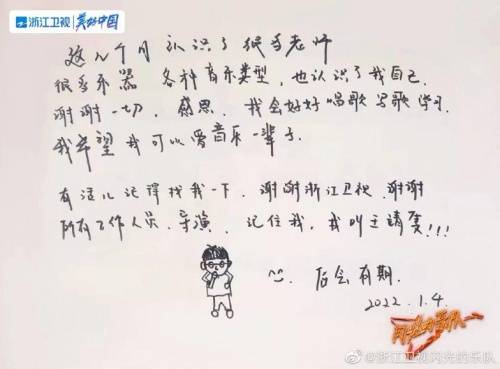 浙江卫视 美好中国
这几个月 认识了很多老师
很多乐器 各种音乐类型，也认识了我自己.
谢谢一切，感恩. 我会好好唱歌写歌学习.
我希望我可以爱音乐一辈子.
有活儿记得找我一下，谢谢浙江卫视，谢谢
所有工作人员、导演，记住我，我叫王靖雯!!!
后会有期.
2022.1.4.
闪光的乐队
@浙江卫视闪光的乐队